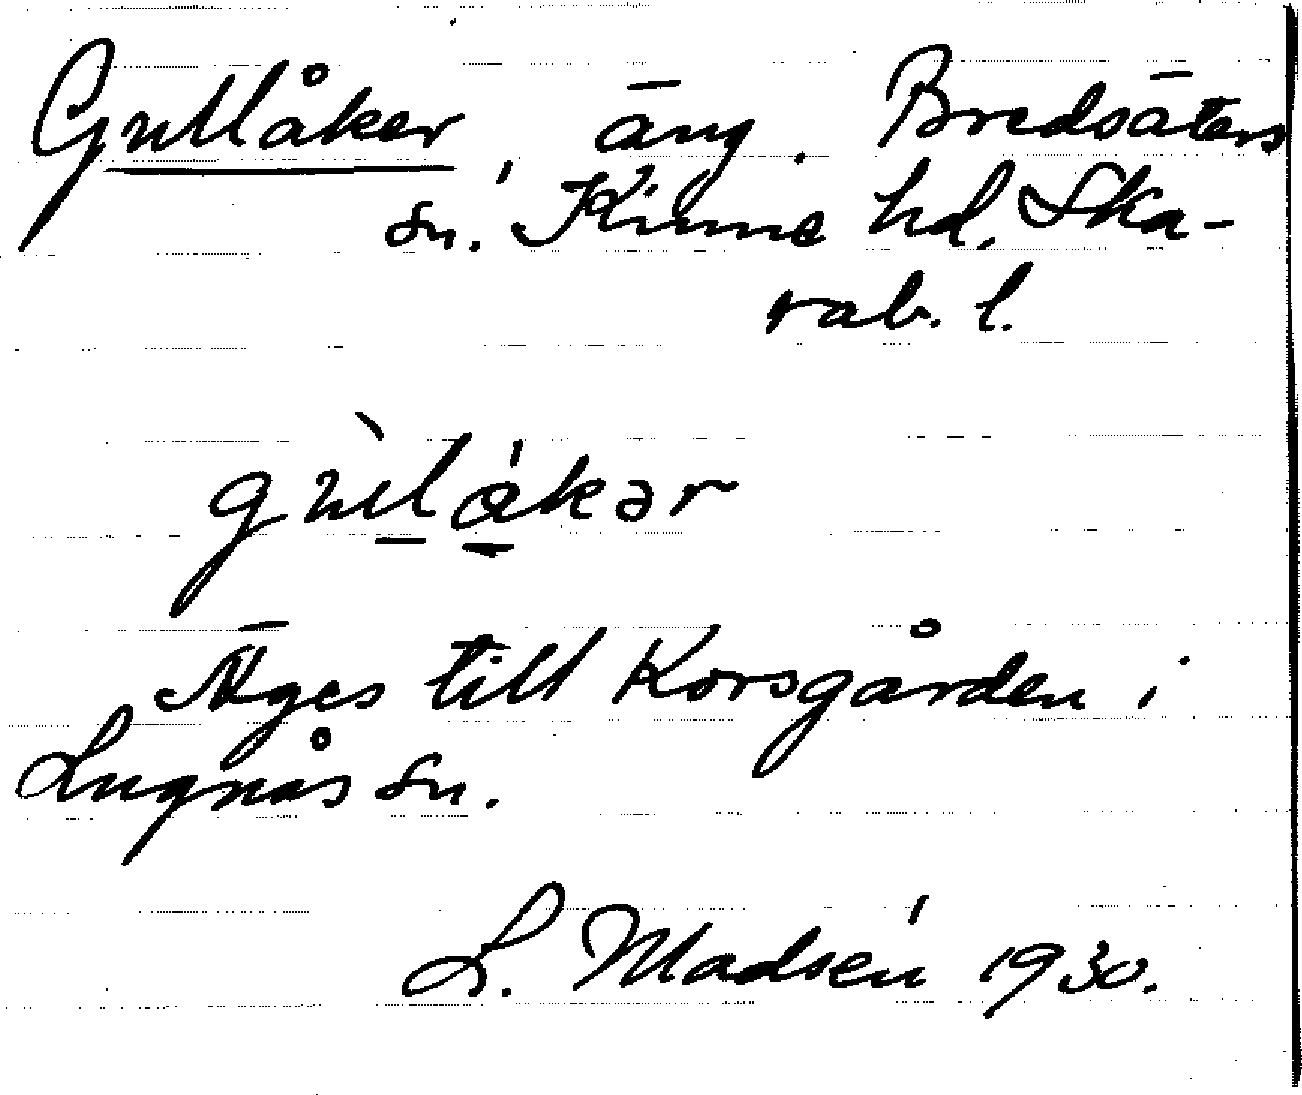 Gullåker, äng. Bredsäters
sn. Kinne hd, Ska-
rab. l.
gùlǻkər
Äges till Korsgården i
Lugnås sn.
L. Madsén 1930.